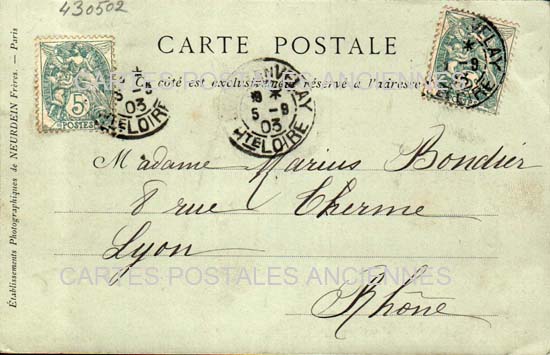 430502
CARTE POSTALE
Ce côté est exclusivement réservé à l'adresse
CARTES POSTALES ANCIENNES
5c
POSTES
03
HTE LOIRE
VELAY
5 -9
03
HTE LOIRE
VELAY
LOIRE
Madame Marius Bondier
8 rue Therme
Lyon
CARTES POSTALES ANCIENNES
Rhône
Établissements Photographiques de NEURDEIN Frères. — Paris